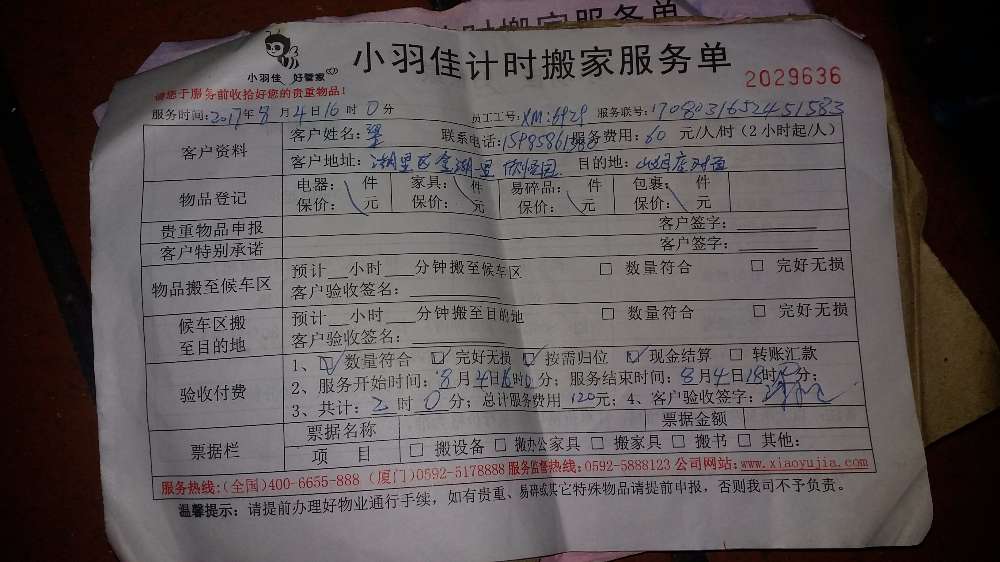 时搬家服务单
小羽佳 好管家
小羽佳计时搬家服务单
2029636
请您于服务前收拾好您的贵重物品!
服务时间:2017年8月4日16时0分 员工工号:XM:6929 服务联号:1708031652451583
客户资料
客户姓名: 联系电话: 服务费用:60元/人/时(2小时起/人)
客户地址:湖里区金湖一里 目的地:
物品登记
电器: 件 家具: 件 易碎品: 件 包裹: 件
保价: 元 保价: 元 保价: 元 保价: 元
贵重物品申报 客户签字:
客户特别承诺 客户签字:
物品搬至候车区
预计___小时___分钟搬至候车区 □ 数量符合 □ 完好无损
客户验收签名:
候车区搬至目的地
预计___小时___分钟搬至目的地 □ 数量符合 □ 完好无损
客户验收签名:
验收付费
1、☑数量符合 ☑完好无损 ☑按需归位 ☑现金结算 □ 转账汇款
2、服务开始时间:8月4日16时0分;服务结束时间:8月4日18时分;
3、共计:2时0分;总计服务费用120元;4、客户验收签字:
票据栏
票据名称 票据金额
项 目 □ 搬设备 □ 搬办公家具 □ 搬家具 □ 搬书 □ 其他:
服务热线:(全国)400-6655-888 (厦门)0592-5178888 服务监督热线:0592-5888123 公司网站:www.xiaoyujia.com
温馨提示:请提前办理好物业通行手续,如有贵重、易碎或其它特殊物品请提前申报,否则我司不予负责。